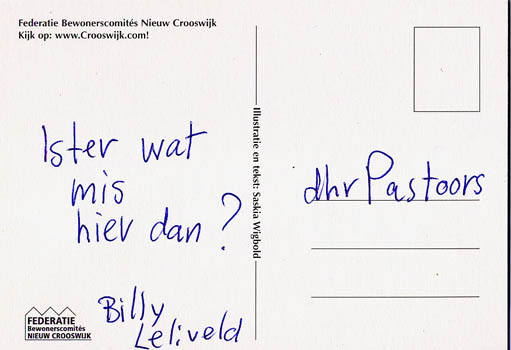 Federatie Bewonerscomités Nieuw Crooswijk
Kijk op: www.Crooswijk.com!
Ister wat
mis
hier dan?
Billy
Leliveld
FEDERATIE
Bewonerscomités
NIEUW CROOSWIJK
Illustratie en tekst: Saskia Wigbold
dhr Pastoors